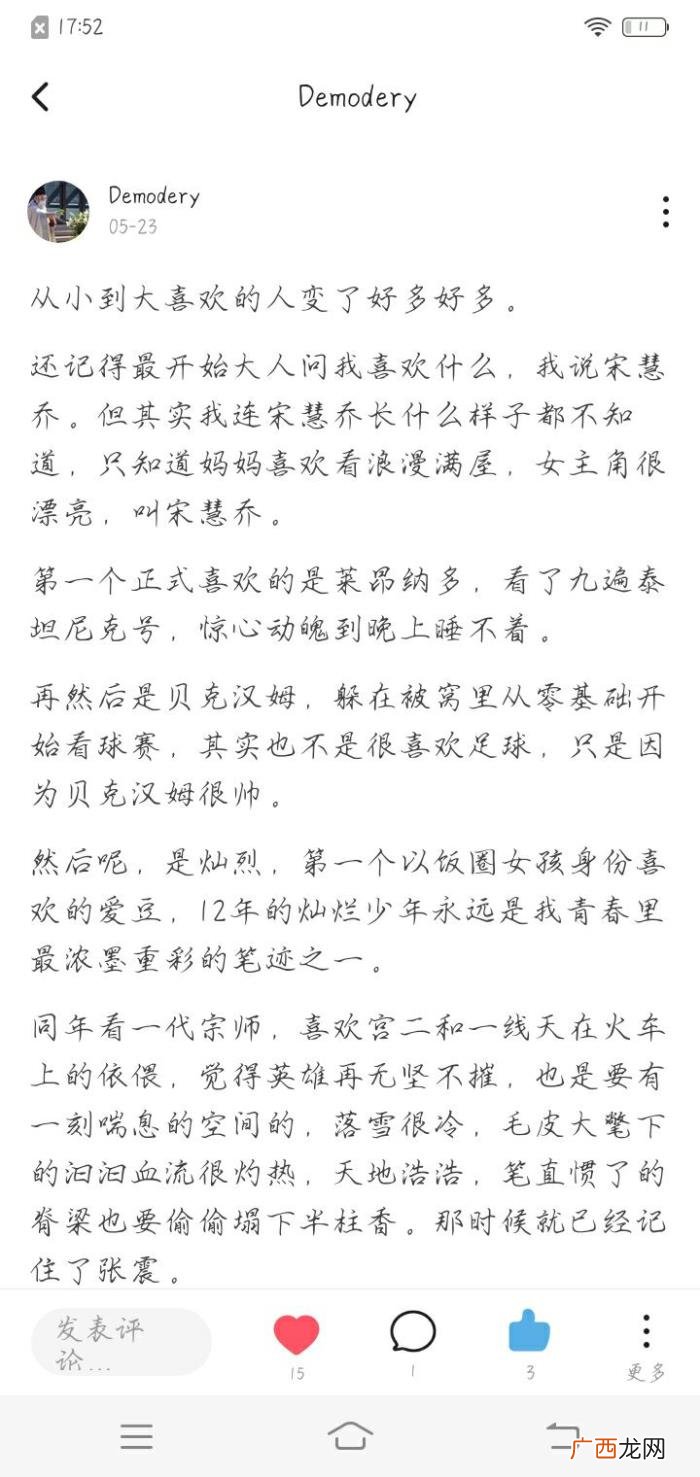 17:52
Demodery
Demodery
05-23
从小到大喜欢的人变了好多好多。
还记得最开始大人问我喜欢什么，我说宋慧
乔。但其实我连宋慧乔长什么样子都不知
道，只知道妈妈喜欢看浪漫满屋，女主角很
漂亮，叫宋慧乔。
第一个正式喜欢的是莱昂纳多，看了九遍泰
坦尼克号，惊心动魄到晚上睡不着。
再然后是贝克汉姆，躲在被窝里从零基础开
始看球赛，其实也不是很喜欢足球，只是因
为贝克汉姆很帅。
然后呢，是灿烈，第一个以饭圈女孩身份喜
欢的爱豆，12年的灿烂少年永远是我青春里
最浓墨重彩的笔迹之一。
同年看一代宗师，喜欢宫二和一线天在火车
上的依偎，觉得英雄再无坚不摧，也是要有
一刻喘息的空间的，落雪很冷，毛皮大氅下
的汩汩血流很灼热，天地浩浩，笔直惯了的
脊梁也要偷偷塌下半柱香。那时候就已经记
住了张震。
发表评
论...
15
1
3
更多
广西龙网